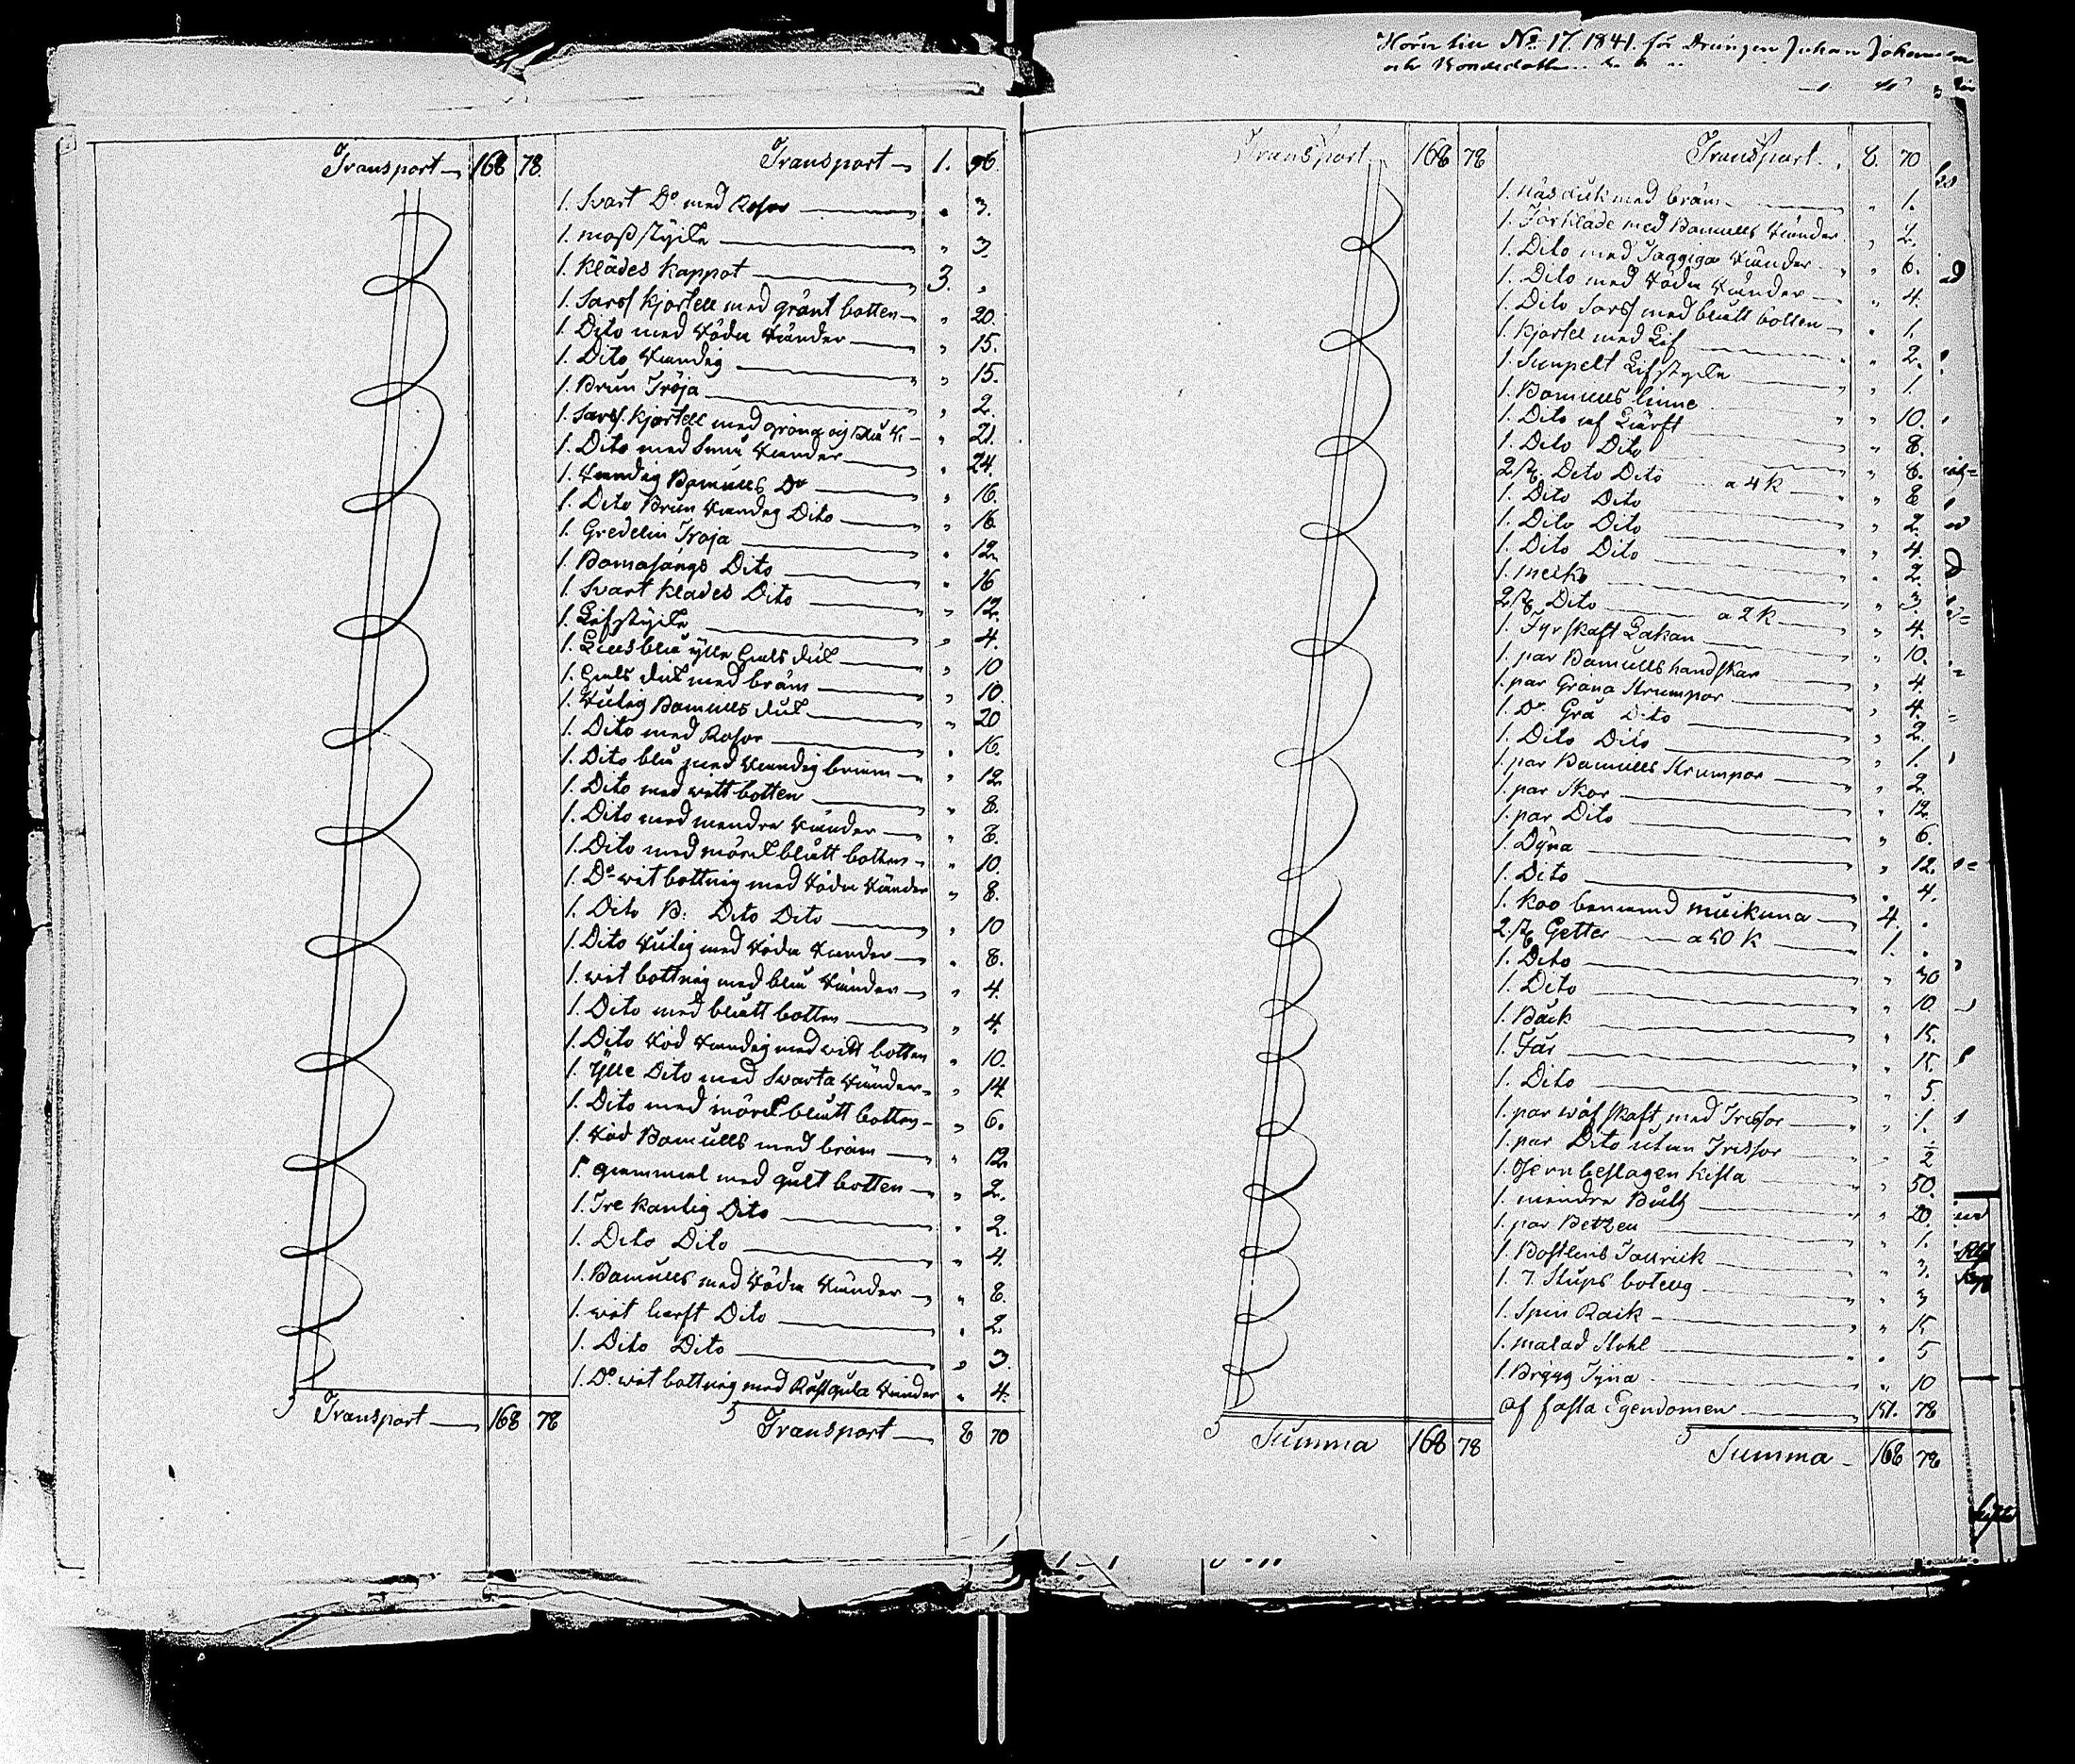 Transport 168 78
Transport 1. 96.
1. Svart Do med Rosor " 3.
1. moss stycke " 3.
1. Klädes Kappot 3. "
1. Sars Kjortell med grönt botten " 20.
1. Dito med Röda Ränder " 15.
1. Dito Randig " 15.
1. Brun Tröja " 2.
1. Sars Kjortell med gröna och Blå R. " 21.
1. Dito med Små Ränder " 24.
1. Randig Bomulls Do " 16.
1. Dito Brun Randig Dito " 16
1. Gredelin Troja " 12
1. Bomasängs Dito " 16
1. Svart Klades Dito " 12
1. Lifstycke " 4.
1. Ljusblå ylle Hals duk " 10
1. Hals duk med bräm " 10
1. Rutig Bomulls duk " 20
1. Dito med Rosor " 16.
1. Dito blå med Randig bräm " 12
1. Dito med witt botten " 8.
1. Dito med mendre Ränder " 8.
1. Dito med mörck blått botten " 10.
1. Do wit bottnig med Röda Ränder " 8.
1. Dito B: Dito Dito " 10
1. Dito Rutig med Röda Rander " 8.
1. wit bottnig med blå Ränder " 4.
1. Dito med blått botten " 4.
1. Dito Röd Randig med vitt botten " 10.
1. Ylle Dito med Svarta Ränder " 14
1. Dito med mörck blått botten " 6.
1. Röd Bomulls med bräm " 12
1. gammal med gult botten " 2.
1. Tre kantig Dito " 2.
1. Dito Dito " 4.
1. Bomulls med Röda Ränder " 8.
1. wit lärft Dito " 2
1. Dito Dito " 3.
1. Do wit bottnig med Rostgula Ränder " 4.
Transport 168 78
Transport 8 70
Hörer till No 17. 1841. för Drängen Johan
och
Transport 168 78
Transport 8. 70
1. Näsduk med bräm " 1.
1. Förkläde med Bomulls Ränder " 2.
1. Dito med Taggiga Ränder " 6.
1. Dito med Röda Ränder " 4.
1. Dito Sars med blått botten " 1.
1. Kjortel med Lif " 2.
1. Simpelt Lifstycke " 1.
1. Bomulls linne " 10.
1. Dito af Lärft " 8.
1. Dito Dito " 8.
2. st. Dito Dito a 4 k " 8
1. Dito Dito " 2.
1. Dito Dito " 4.
1. Dito Dito " 2.
1. " 3.
2. st. Dito a 2 k " 4.
1. Fyrskaft Lakan " 10.
1. par Bomulls handskar " 4.
1. par Gröna Strumpor " 4.
1. Do Grå Dito " 2.
1. Dito Dito " 1.
1. par Bomulls Strumpor " 2.
1. par Skor " 12.
1. par Dito " 6.
1. Dyna " 12.
1. Dito " 4.
1. Koo benämnd 4. "
2. st. Getter a 50 k 1. "
1. Dito " 30
1. Dito " 10
1. Båck " 15.
1. Får " 15.
1. Dito " 5.
1. par wäf skaft med Trissor " 1.
1. par Dito utan Trissor " ½
1. Jernbeslagen Kista " 50.
1. mindre Bult " 20.
1. par Betzen " 1.
1. Postlins Tallrick " 3.
1. 7. Stups botelig " 3
1. Spin Råck " 15
1. malad Stohl " 5
1. Brygg Tyna " 10
Af fasta Egendomen 151. 78
Summa 168 78
Summa 168 78